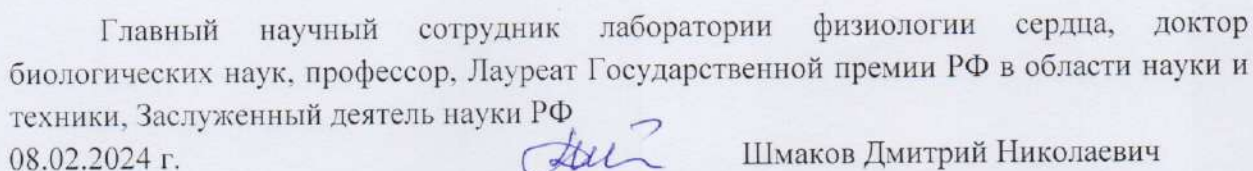 Главный научный сотрудник лаборатории физиологии сердца, доктор
биологических наук, профессор, Лауреат Государственной премии РФ в области науки и
техники, Заслуженный деятель науки РФ
08.02.2024 г. Шмаков Дмитрий Николаевич